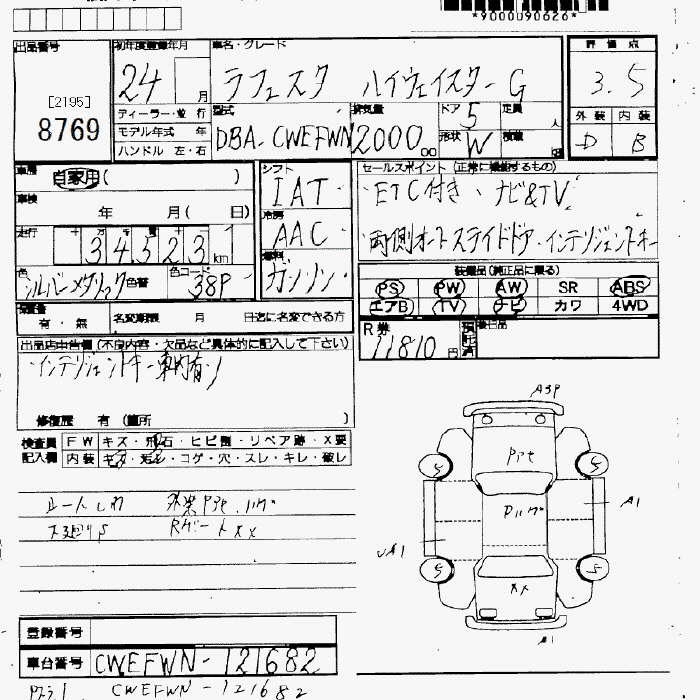 *9000U90626*
出品番号 初年度登録年月 車名・グレード 評価点
[2195]
8769
24 月 ラフェスタ ハイウェイスター G 3.5
ディーラー・並行 型式 排気量 ドア 定員 外装 内装
モデル年式 年 DBA-CWEFWN 2000 cc 5 人 D B
ハンドル 左・右 形状 W 積載
車歴 自家用( ) シフト IAT セールスポイント (正常に機能するもの)
車検 年 月( 日) 冷房 AAC ETC付き、ナビ&TV
走行 十 万 千 百 十 一 34523 km 両側オートスライドドア・インテリジェントキー
色 シルバーメタリック 色替 色コード 38P 燃料 ガソリン 装備品 (純正品に限る)
PS PW AW SR ABS
エアB TV ナビ カワ 4WD
保証書 有・無 名変期限 月 日迄に名変できる方
R券 11810 円 後日品
出品店申告欄 (不良内容・欠品など具体的に記入して下さい)
インテリジェントキー車内有り
修復歴 有 (箇所 )
検査員 FW キズ・飛石・ヒビ割・リペア跡・X要
記入欄 内装 キズ・汚レ・コゲ・穴・スレ・キレ・破レ
シートしわ
Rゲート XX
A3P
Pﾊｹ
A1
XX
A1
登録番号
車台番号 CWEFWN-121682
CWEFWN-121682